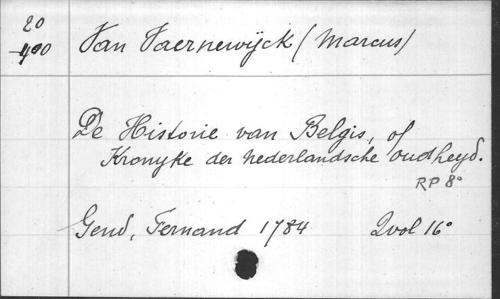 20
400
Van Vaernewijck (Marcus)
De Historie van Belgis, of
Kronyke der Nederlandsche Oudheyd.
RP 8°
Gend, Fernand 1784 2vol 16°